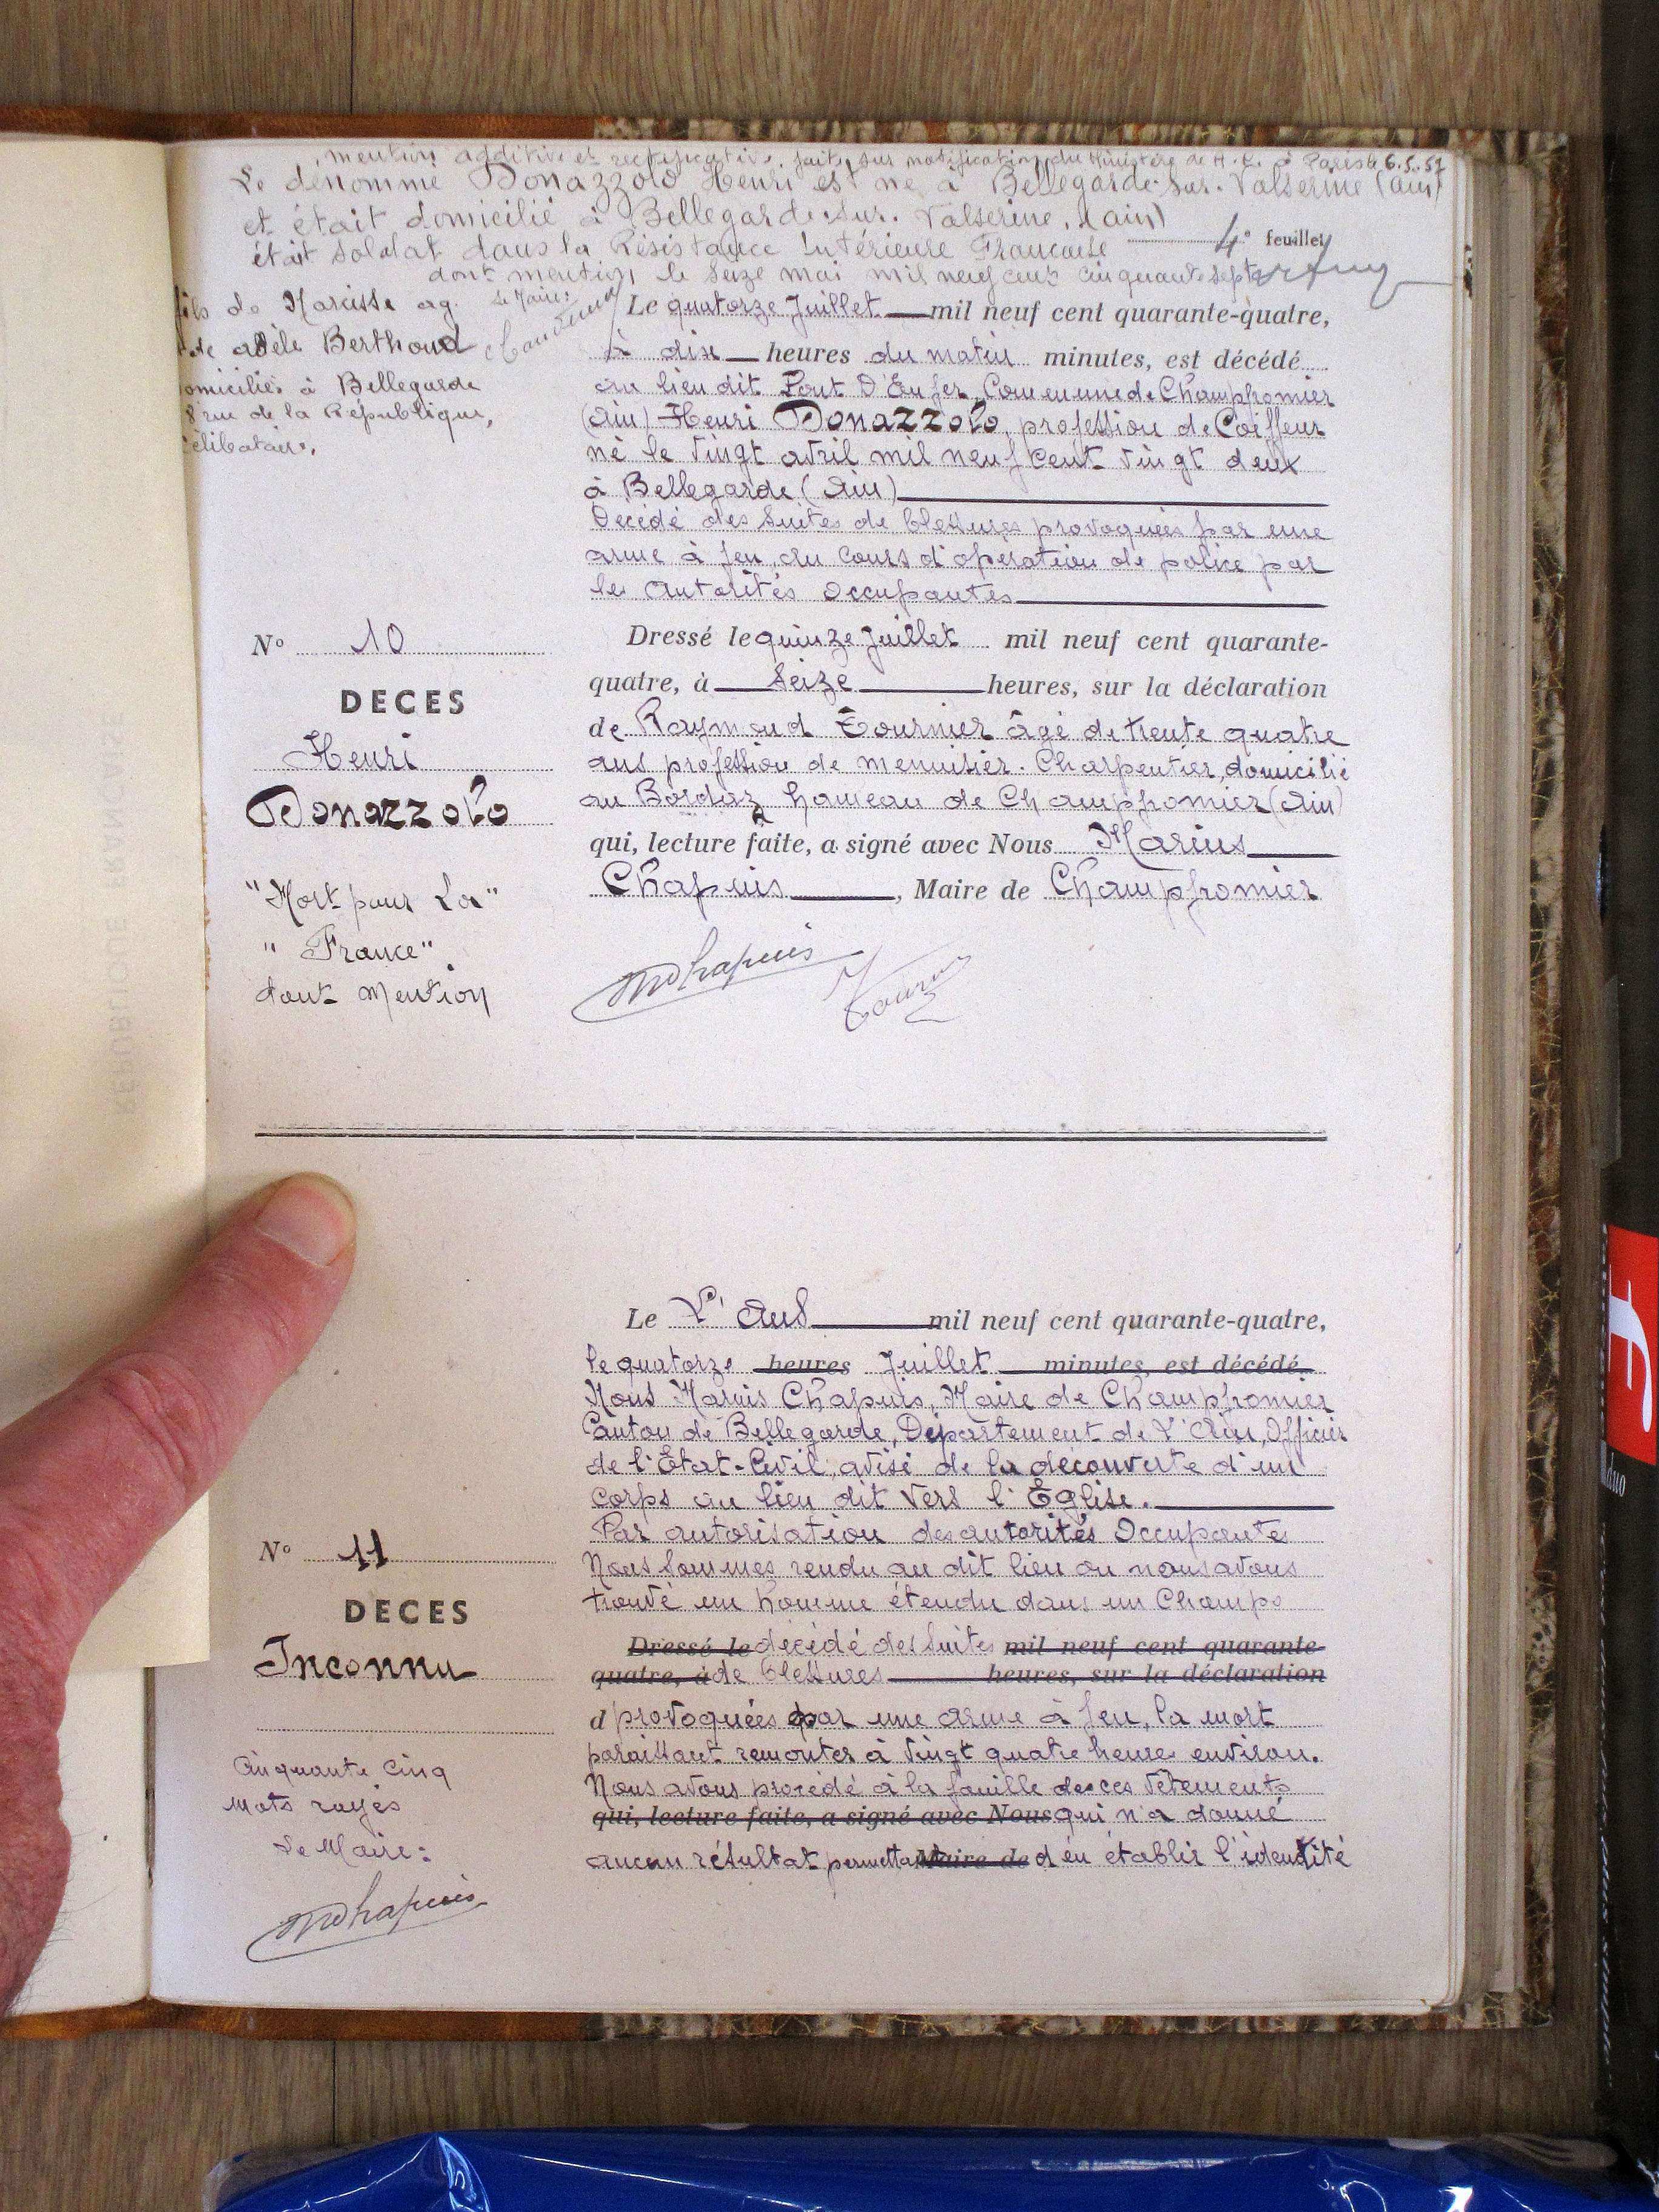 mention additive et rectificative, faite sur notification du Ministère de A. C. à Paris le 6.5.57
Le dénommé Donazzolo Henri est né à Bellegarde-sur-Valserine (Ain)
et était domicilié à Bellegarde-sur-Valserine, (ain)
était soldat dans la Résistance Intérieure Française
4e feuillet
dont mention, le seize mai mil neuf cent cinquante sept
Le Maire:
fils de Narcisse ag.
de adèle Berthoud
omiciliés à Bellegarde
8 rue de la République,
célibataire.
Le quatorze Juillet mil neuf cent quarante-quatre,
à dix heures du matin minutes, est décédé
au lieu dit Pont D'Enfer, Commune de Champfromier
(Ain) Henri Donazzolo, profession de Coiffeur
né le Vingt avril mil neuf cent Vingt deux
à Bellegarde (Ain)
Décédé des suites de blessures provoquées par une
arme à feu, au cours d'opération de police par
les Autorités Occupantes
Dressé le quinze Juillet mil neuf cent quarante-
quatre, à Seize heures, sur la déclaration
de Raymond Tournier âgé de trente quatre
ans profession de menuisier-Charpentier, domicilié
au Bordaz hameau de Champfromier (Ain)
qui, lecture faite, a signé avec Nous Marius
Chapuis, Maire de Champfromier
No 10
DECES
Henri
Donazzolo
"Mort pour La"
"France"
dont Mention
MChapuis
Tournier
Le L'an mil neuf cent quarante-quatre,
le quatorze heures Juillet minutes, est décédé
Nous Marius Chapuis, Maire de Champfromier
Canton de Bellegarde, Département de L'Ain, Officier
de l'Etat-Civil, avisé de la découverte d'un
corps au lieu dit Vers l'Eglise.
Par autorisation des autorités Occupantes
Nous sommes rendu au dit lieu ou nous avons
trouvé un homme étendu dans un Champs
Dressé le décédé des suites mil neuf cent quarante
quatre, à de blessures heures, sur la déclaration
d provoquées par une arme à feu, la mort
paraissant remonter à Vingt quatre heures environ.
Nous avons procédé à la fouille de ces Vêtements
qui, lecture faite, a signé avec Nous qui n'a donné
aucun résultat permettant Maire de d'en établir l'identité
No 11
DECES
Inconnu
Cinquante Cinq
Mots rayés
Le Maire:
MChapuis
duo